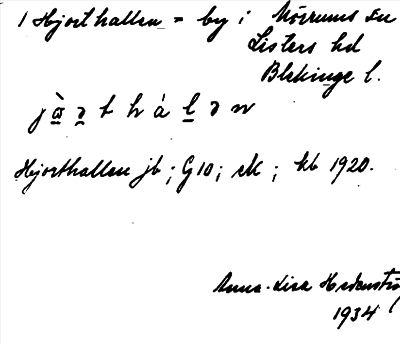 1 Hjorthallen = by i Mörrums sn
Listers hd
Blekinge l.
j à̱ ə̱ t h á ḻ ə n
Hjorthallen jb ; G10 ; eK ; kb 1920.
Anna-Lisa Hedenströ
1934